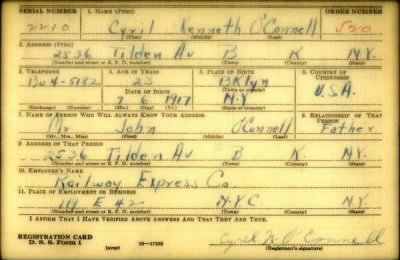 SERIAL NUMBER 1. NAME (Print) ORDER NUMBER
2210 Cyril Kenneth O'Connell 520
(First) (Middle) (Last)
2. ADDRESS (Print)
2536 Tilden Av B K N.Y.
(Number and street or R. F. D. number) (Town) (County) (State)
3. TELEPHONE 4. AGE IN YEARS 5. PLACE OF BIRTH 6. COUNTRY OF CITIZENSHIP
Bu 4-5182 23 BKlyn
DATE OF BIRTH (Town or county)
7 6 1917 N.Y. U.S.A.
(Exchange) (Number) (Mo.) (Day) (Yr.) (State or country)
7. NAME OF PERSON WHO WILL ALWAYS KNOW YOUR ADDRESS 8. RELATIONSHIP OF THAT PERSON
Mr. John O'Connell Father
(Mr., Mrs., Miss) (First) (Middle) (Last)
9. ADDRESS OF THAT PERSON
2536 Tilden Av B K N.Y.
(Number and street or R. F. D. number) (Town) (County) (State)
10. EMPLOYER'S NAME
Railway Express Co.
11. PLACE OF EMPLOYMENT OR BUSINESS
E 42 NYC N.Y.
(Number and street or R. F. D. number) (Town) (County) (State)
I AFFIRM THAT I HAVE VERIFIED ABOVE ANSWERS AND THAT THEY ARE TRUE.
REGISTRATION CARD
D. S. S. Form 1 (over) Cyril K. O'Connell
(Registrant's signature)